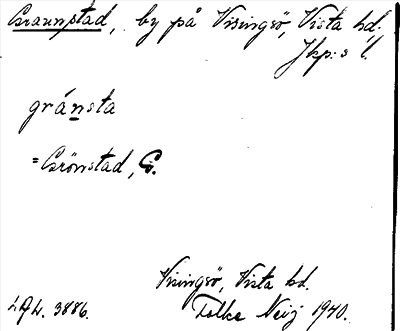 Graunstad, by på Visingsö, Vista hd.,
Jkp:s l.
gránsta
=Grönstad, G.
Visingsö, Vista hd.
Folke Neij 1940.
LAL. 3886.